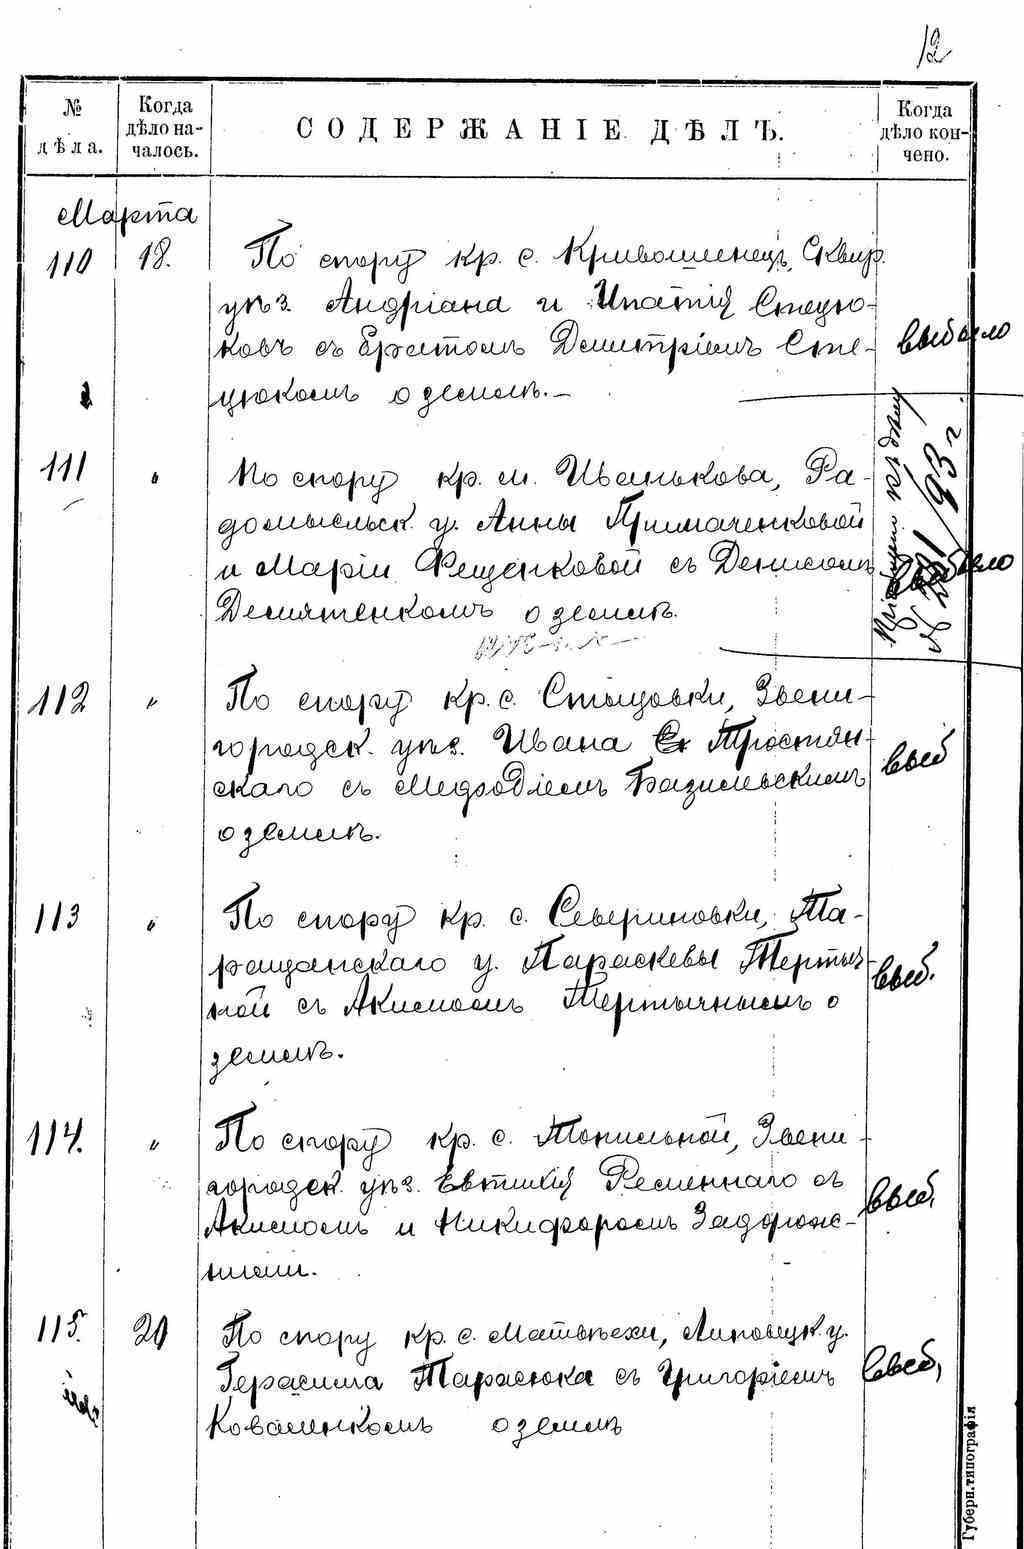 12
№ дѣла.
Когда дѣло началось.
СОДЕРЖАНІЕ ДѢЛЪ.
Когда дѣло кончено.
Марта
110 18. По спору кр. с. Кривошеинецъ, Сквир.
уѣз. Андріана и Ипатія Стецю-
ковъ съ Братомъ Димитріемъ Сте-
цюкомъ о землѣ.-
выбыло
111 " По спору кр. м. Иванькова, Ра-
домысльск. у. Анны Примаченковой
и Маріи Фещенковой съ Денисомъ
Демятенкомъ о землѣ.
къ дѣлу
/93 г.
выбыло
112 " По спору кр. с. Стецовки, Звени-
городск. уѣз. Ивана Тростян-
скаго съ Мефодіемъ Базилевскимъ
о землѣ.
выб
113 " По спору кр. с. Севериновки, Та-
ращанскаго у. Параскевы Тертыч-
ной съ Акимомъ Тертычнымъ о
землѣ.
выб.
114. " По спору кр. с. Топильной, Звени-
городск. уѣз. Евтихія Ременнаго съ
Акимомъ и Никифоромъ Задорож-
ними.
выб.
115. 20 По спору кр. с. Матвѣихи, Липовецк. у.
Герасима Тарасюка съ Григоріемъ
Коваленкомъ о землѣ
выб,
Губерн. типографія